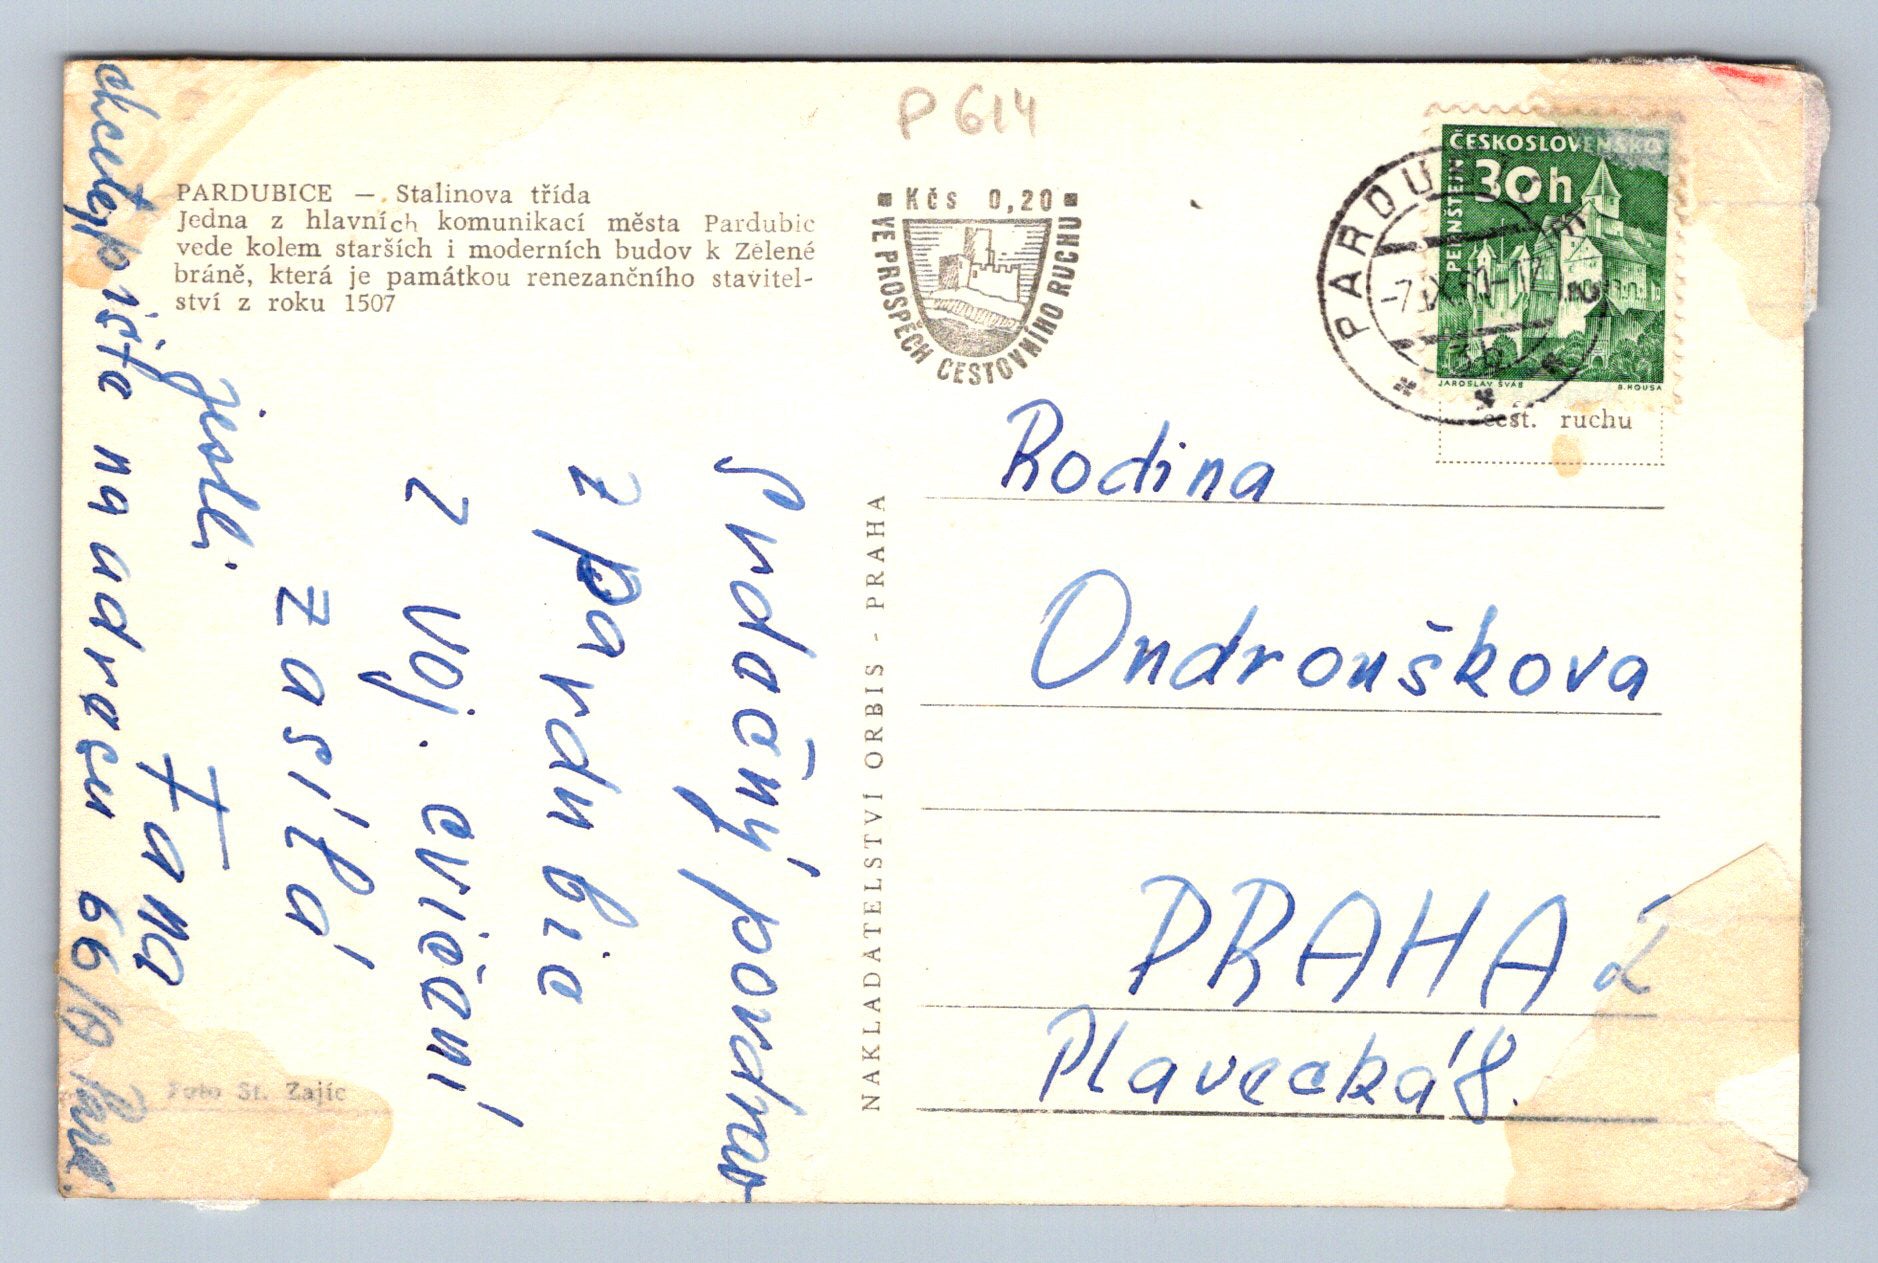 P 614
PARDUBICE — Stalinova třída
Jedna z hlavních komunikací města Pardubic
vede kolem starších i moderních budov k Zelené
bráně, která je památkou renezančního stavitel-
ství z roku 1507
Kčs 0,20
VE PROSPĚCH CESTOVNÍHO RUCHU
ČESKOSLOVENSKO
30h
PERNŠTEJN
JAROSLAV ŠVÁB
B. HOUSA
PARDU
-7.IX.60-17
3b
cest. ruchu
Rodina
Ondrouškova
PRAHA 2
Plavecká 8.
NAKLADATELSTVÍ ORBIS - PRAHA
Srdečný pozdrav
z Pardubic
z voj. cvičení
zasílá
Fana
jestli
chcete, pište na adresu 66/A
Foto St. Zajíc